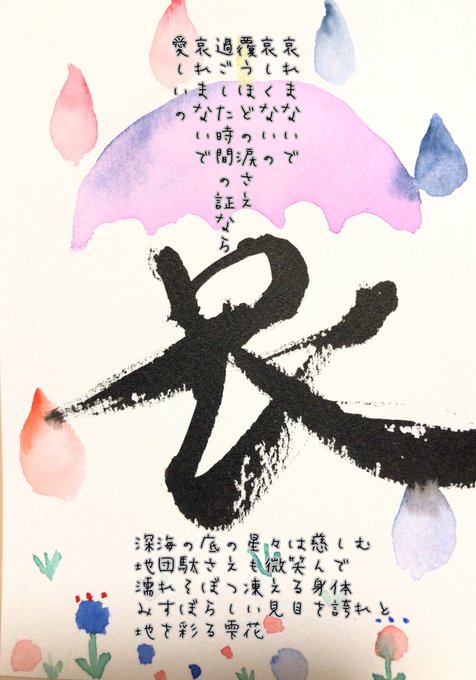 哀れまないで
哀しくないの
覆うほどの涙さえ
過ごした時間の証なら
哀れまないで
愛しいの
哀
深海の底の星々は慈しむ
地団駄さえも微笑んで
濡れそぼつ凍える身体
みすぼらしい見目を誇れと
地を彩る雫花